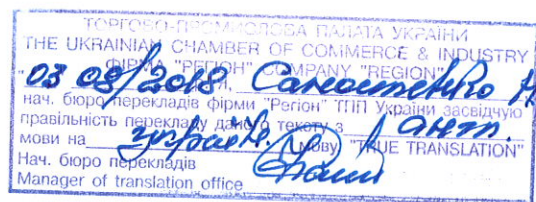 ТОРГОВО-ПРОМИСЛОВА ПАЛАТА УКРАЇНИ
THE UKRAINIAN CHAMBER OF COMMERCE & INDUSTRY
ФІРМА "РЕГІОН" COMPANY "REGION"
03 08/2018 Я,
нач. бюро перекладів фірми "Регіон" ТПП України засвідчую
правільність перекладу даного тексту з англ.
мови на україн. мову "TRUE TRANSLATION"
Нач. бюро перекладів
Manager of translation office